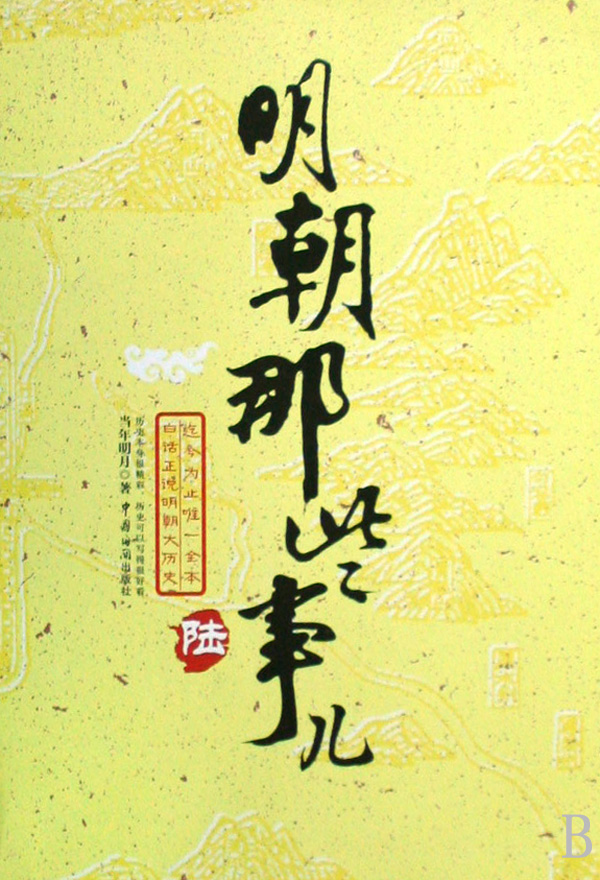 明朝那些事儿
迄今为止唯一全本
白话正说明朝大历史
历史本身很精彩 历史可以写得很好看
当年明月 著 中国海关出版社
陆
B